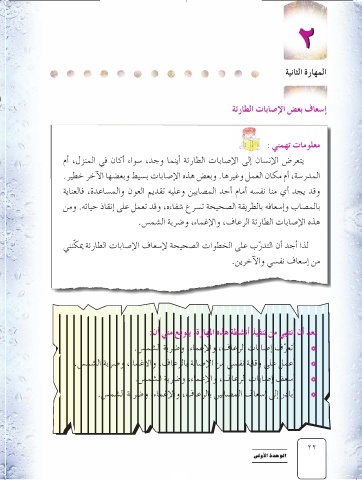 ٢
المهارة الثانية
إسعاف بعض الإصابات الطارئة
معلومات تهمني :
يتعرض الإنسان إلى الإصابات الطارئة أينما وجد، سواء أكان في المنزل، أم
المدرسة، أم مكان العمل وغيرها. وبعض هذه الإصابات بسيط وبعضها الآخر خطير.
وقد يجد أي منا نفسه أمام أحد المصابين وعليه تقديم العون والمساعدة، فالعناية
بالمصاب وإسعافه بالطريقة الصحيحة تسرع شفاءه، وقد تعمل على إنقاذ حياته. ومن
هذه الإصابات الطارئة الرعاف، والإغماء، وضربة الشمس.
لذا أجد أن التدرّب على الخطوات الصحيحة لإسعاف الإصابات الطارئة يمكّنني
من إسعاف نفسي والآخرين.
بعد أن تنتهي من تنفيذ أنشطة هذه المهارة، يتوقع منك أن:
تعرّف إصابات الرعاف، والإغماء، وضربة الشمس.
تعمل على وقاية نفسك من الإصابة بالرعاف، والإغماء، وضربة الشمس.
تسعف إصابات الرعاف، والإغماء، وضربة الشمس.
تبادر إلى إسعاف المصابين بالرعاف، والإغماء، وضربة الشمس.
٢٢
الوحدة الأولى